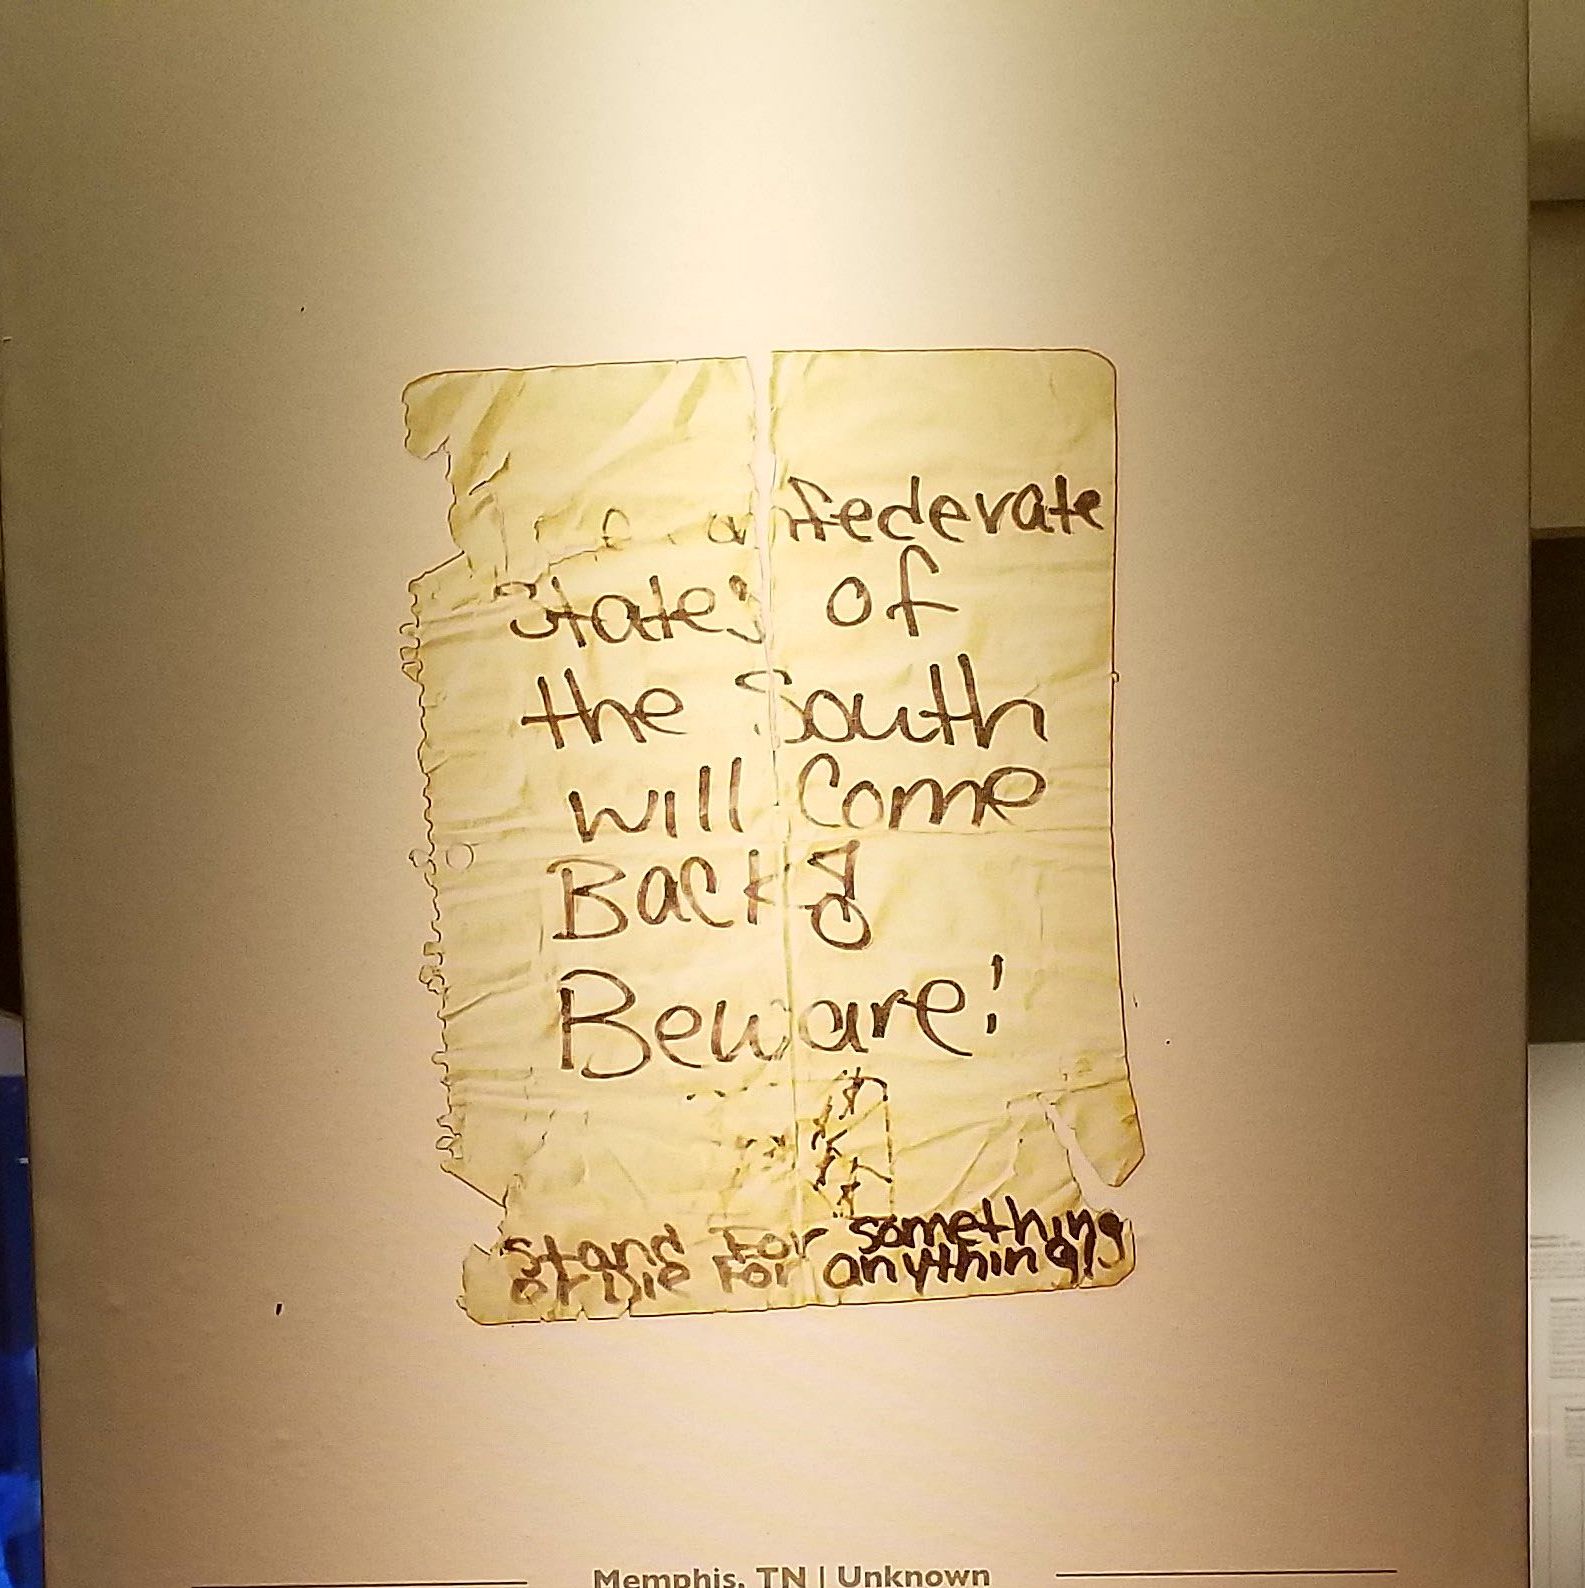 Confederate
States of
the South
will Come
Back &
Beware!
Stand For something
or Die For anything!
Memphis, TN | Unknown